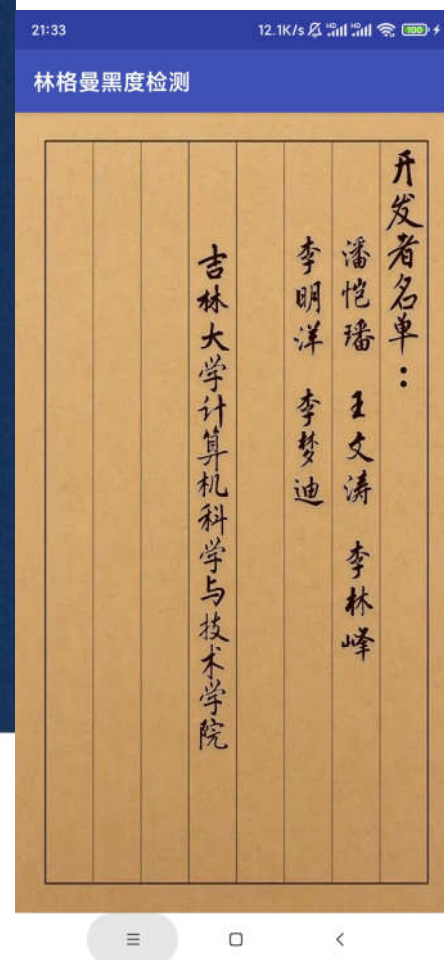 21:33 12.1K/s HD HD 100
林格曼黑度检测
开发者名单：
潘恺璠 王文涛 李林峰
李明洋 李梦迪
吉林大学计算机科学与技术学院